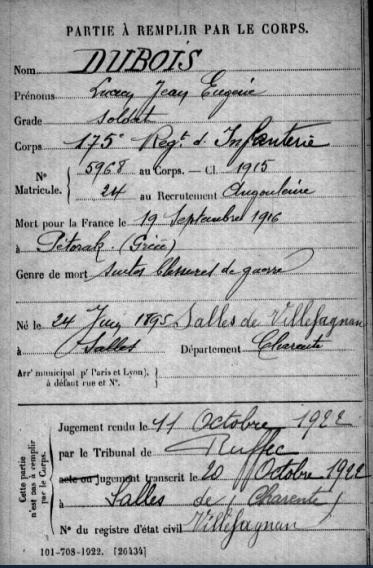 PARTIE À REMPLIR PAR LE CORPS.
Nom DUBOIS
Prénoms Lucien Jean Eugène
Grade Soldat
Corps 175e Regt. d'Infanterie
N° Matricule. { 5968 au Corps. — Cl. 1915
24 au Recrutement Angoulême
Mort pour la France le 19 Septembre 1916
à Pétorak (Grèce)
Genre de mort suites blessures de guerre
Né le 24 Juin 1895 Salles de Villefagnan
à Salles Département Charente
Arrt municipal (pr Paris et Lyon), à défaut rue et N°. }
Cette partie n'est pas à remplir par le Corps.
Jugement rendu le 11 Octobre 1922
par le Tribunal de Ruffec
acte ou jugement transcrit le 20 Octobre 1922
à Salles de (Charente)
N° du registre d'état civil Villefagnan
101-708-1922. [26434]